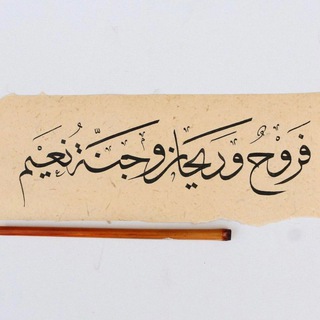 فَرَوْحٌ وَرَيْحَانٌ وَجَنَّةُ نَعِيمٍ